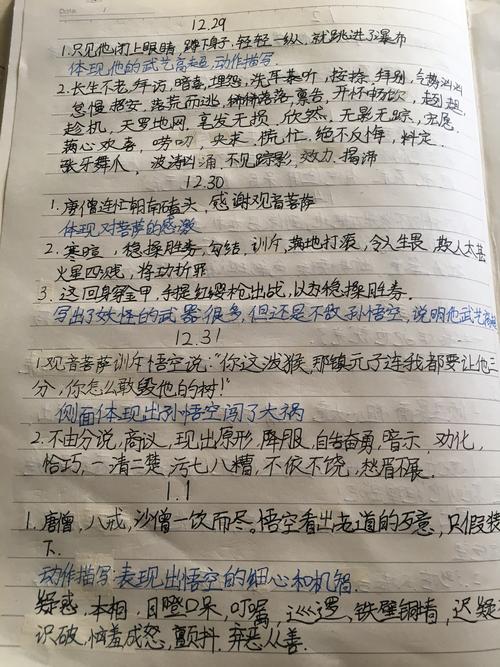 12.29
1.只见他闭上眼睛,蹲下身子,轻轻一纵,就跳进了瀑布
体现他的武艺高超,动作描写.
2.长生不老,拜访,暗喜,埋怨,洗耳恭听,按捺,拜别,气势汹汹
怠慢,招安,落荒而逃,禀告,开怀畅饮,
趁机,天罗地网,毫发无损,欣然,无影无踪,
满心欢喜,唠叨,央求,慌忙,绝不反悔,料定.
张牙舞爪,波涛汹涌,不见踪影,效力.揭谛
12.30
1.唐僧连忙朝南磕头,感谢观音菩萨
体现对菩萨的感激
2.寒暄,稳操胜券,勾结,训斥,满地打滚,令人生畏,欺人太甚
火星四溅,将功折罪
3.这回身穿金甲,手提红缨枪出战,以为稳操胜券.
写出了妖怪的武器很多,但还是不敌孙悟空,说明他武艺高强
12.31
1.观音菩萨训斥悟空说:"你这泼猴,那镇元子连我都要让他三
分,你怎么敢毁他的树!"
侧面体现出孙悟空闯了大祸
2.不由分说,商议,现出原形,降服,自告奋勇,暗示,劝化,
恰巧,一清二楚,污七八糟,不依不饶,愁眉不展.
1.1
1.唐僧,八戒,沙僧一饮而尽.悟空看出老道的歹意,只假装
下.
动作描写:表现出悟空的细心和机智.
疑惑,本相,目瞪口呆,叮嘱,巡逻,铁壁铜墙,迟疑
识破,恼羞成怒,颤抖,弃恶从善.